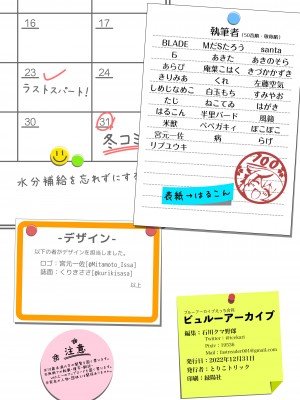 執筆者(50音順・敬称略)
BLADE MだSたろう santa
る あきた あきのそら
あらび 庵葉こはく きづかかずき
きりみあ くれ 左藤空気
しめじなめこ 白玉もち すみやお
たじ ねこてゐ はがき
はるこん 半里バード 風籟
米獣 ベベガキィ ぽこぽこ
宮元一佐 病 らげ
リブユウキ
100
表紙→はるこん
23 24
ラストスパート!
30 31
冬コミ
水分補給を忘れずにする
-デザイン-
以下の者がデザインを担当しました。
ロゴ:宮元一佐[@Mitamoto_Issa]
誌面:くりきささ[@kurikisasa]
以上
注意
ブルーアーカイブえっち合同
ビュルーアーカイブ
編集:石川クマ野郎
Pixiv:19536
発行日:2022年12月31日
発行者:とりこトリック
印刷:緑陽社